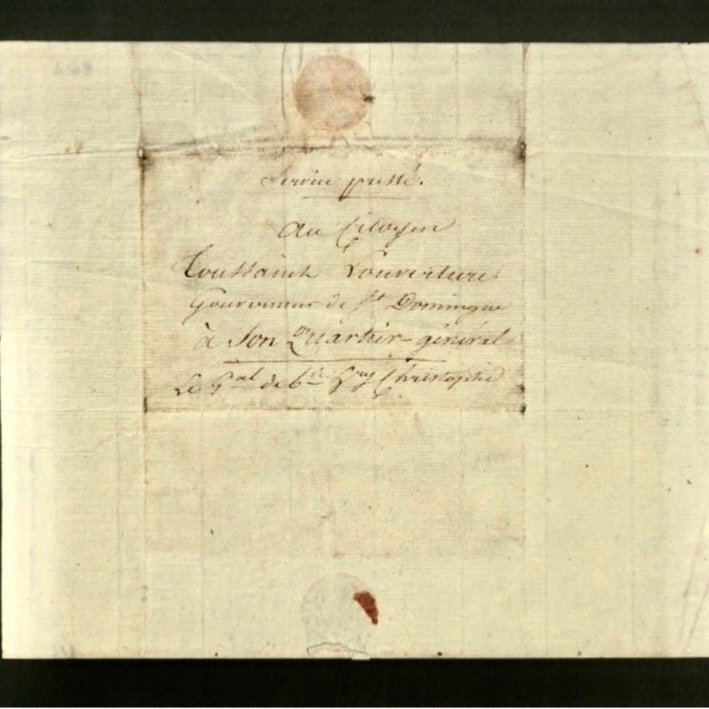 Service pressé.
Au Citoyen
Toussaint Louverture
Gouverneur de St Domingue
à Son Quartier-général
Le Gal de bde Hry Christophe